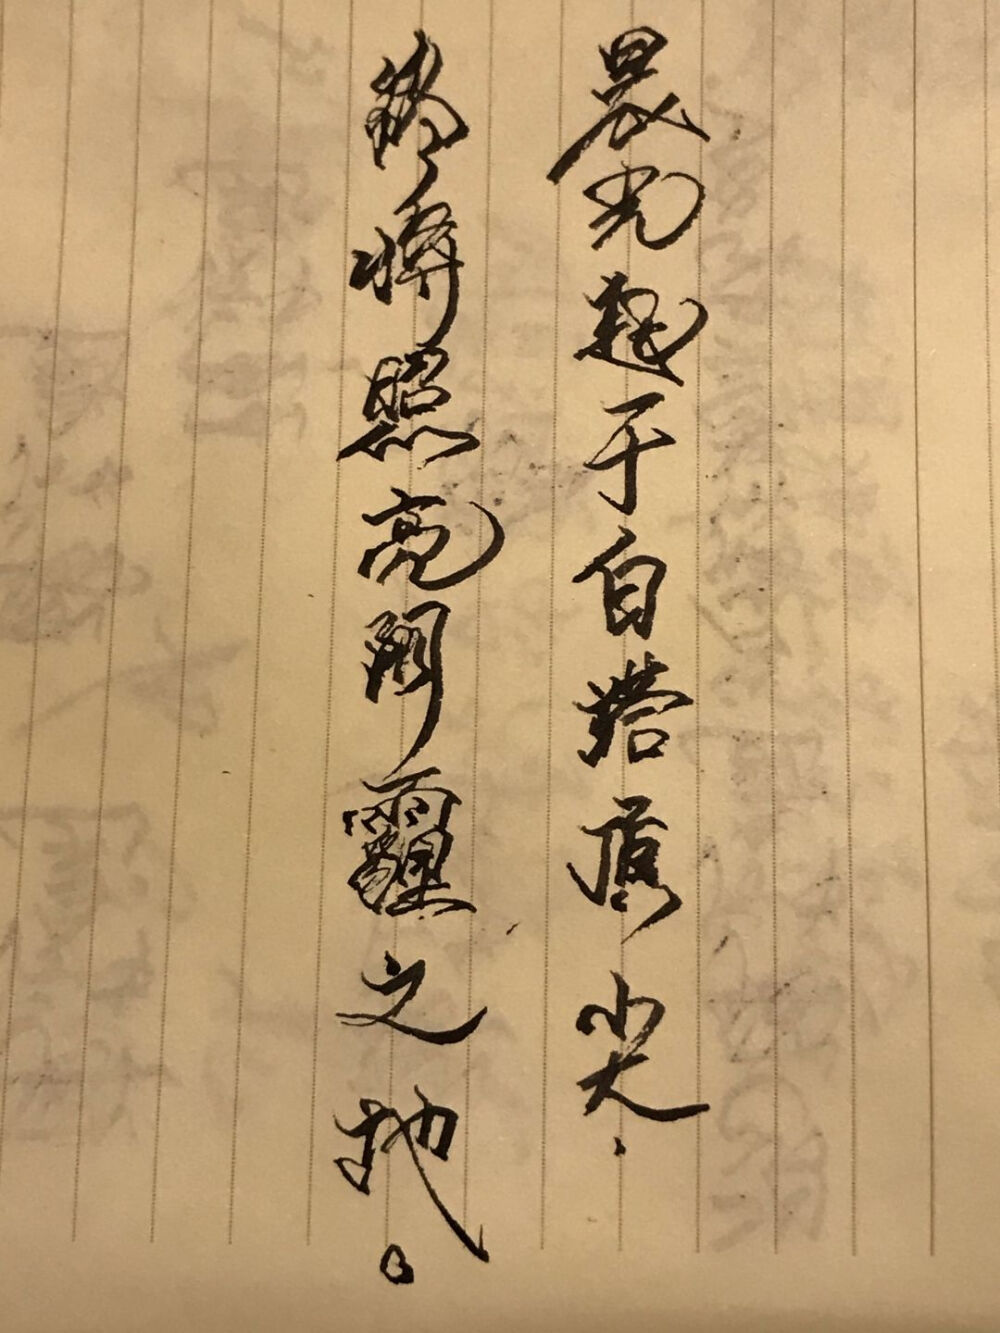 晨光起于白塔屋尖,
终将照亮阴霾之地。